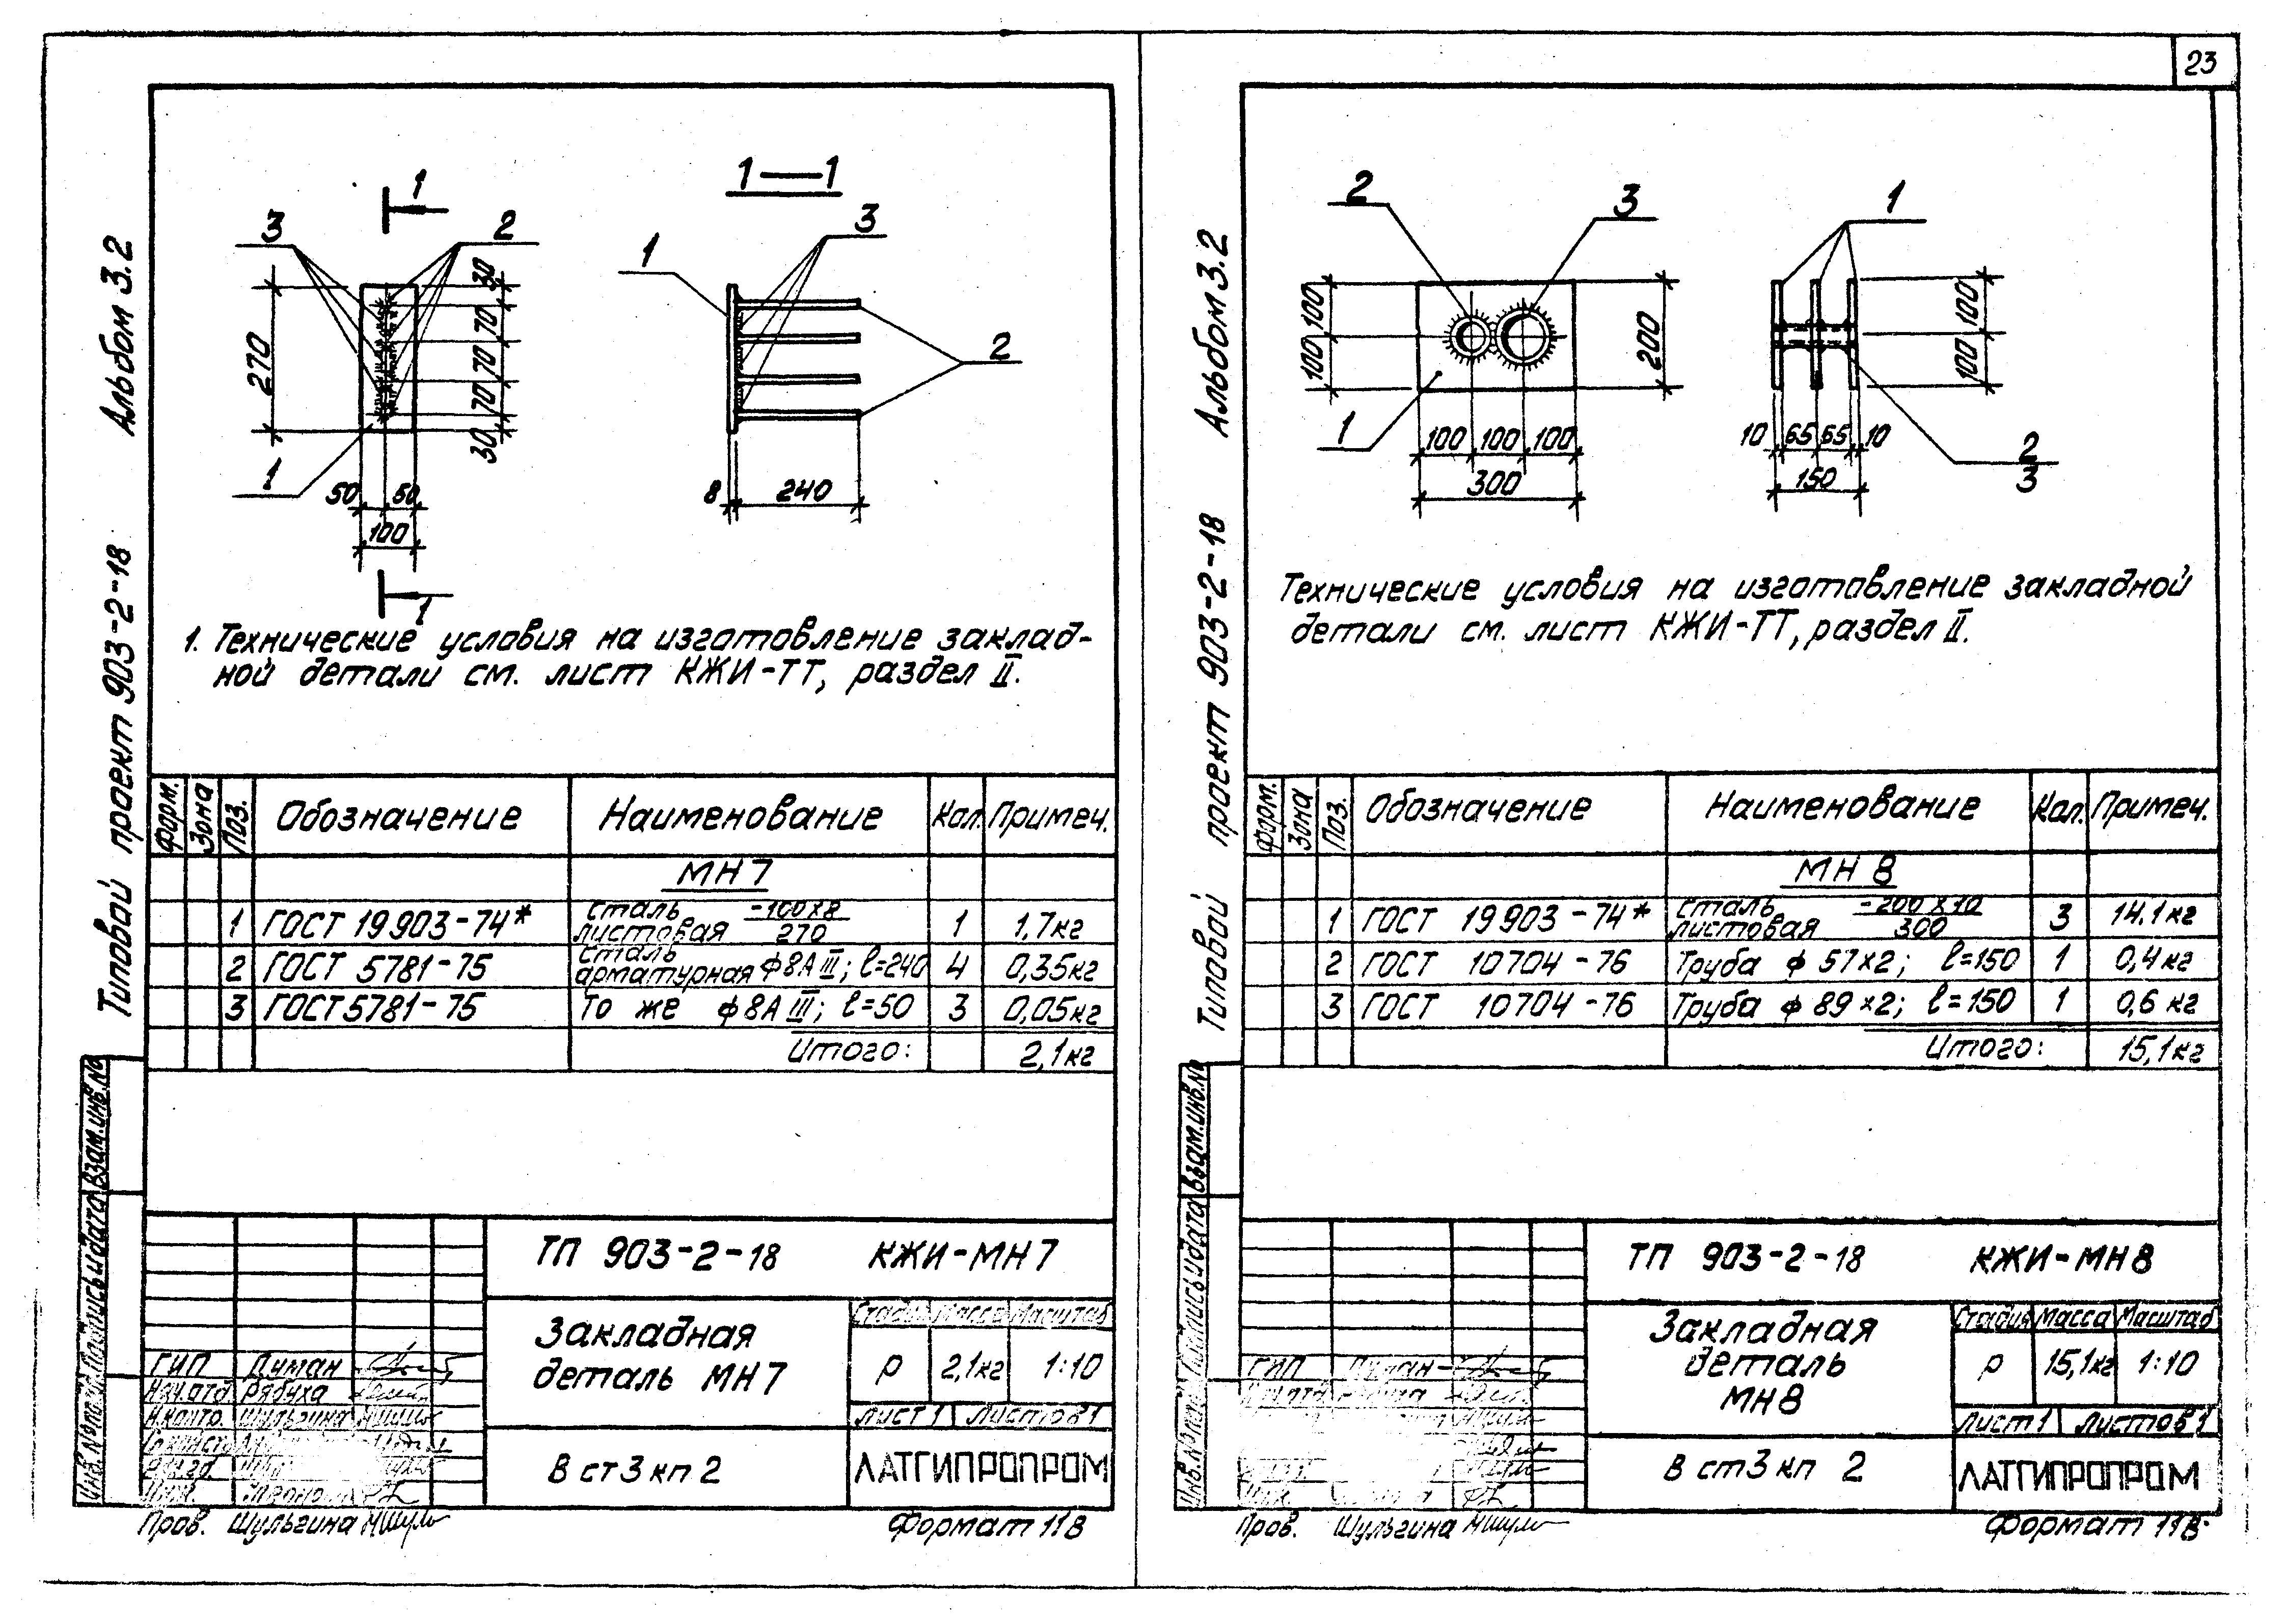 23
Альбом 3.2
Типовой проект 903-2-18
1
1—1
3
2
1
3
2
1
1
270
30
70
70
70
30
50
50
100
8
240
1. Технические условия на изготовление заклад-
ной детали см. лист КЖИ-ТТ, раздел II.
Форм.
Зона
Поз.
Обозначение
Наименование
Кол.
Примеч.
МН7
1 ГОСТ 19903-74* Сталь листовая -100×8 / 270 1 1,7кг
2 ГОСТ 5781-75 Сталь арматурная ф8АIII; ℓ=240 4 0,35кг
3 ГОСТ 5781-75 То же ф8АIII; ℓ=50 3 0,05кг
Итого: 2,1кг
Инв.№подл.
Подпись и дата
Взам.инв.№
ТП 903-2-18 КЖИ-МН7
Закладная
деталь МН7
Стадия Масса Масштаб
Р 2,1кг 1:10
Лист 1 Листов 1
В ст3кп2
ЛАТГИПРОПРОМ
ГИП Думан
Нач.отд. Рябуха
Н.контр. Шульгина
Пров. Шульгина
Формат 11В
Альбом 3.2
Типовой проект 903-2-18
2
3
1
1
2
3
100
100
200
100 100 100
300
100
100
10 65 65 10
150
Технические условия на изготовление закладной
детали см. лист КЖИ-ТТ, раздел II.
Форм.
Зона
Поз.
Обозначение
Наименование
Кол.
Примеч.
МН 8
1 ГОСТ 19903-74* Сталь листовая -200×10 / 300 3 14.1кг
2 ГОСТ 10704-76 Труба ф 57×2; ℓ=150 1 0,4кг
3 ГОСТ 10704-76 Труба ф 89×2; ℓ=150 1 0,6 кг
Итого: 15,1кг
Взам.инв.№
ТП 903-2-18 КЖИ-МН8
Закладная
деталь
МН8
Стадия Масса Масштаб
Р 15,1кг 1:10
Лист 1 Листов 1
В ст3кп 2
ЛАТГИПРОПРОМ
ГИП
Пров. Шульгина
Формат 11В